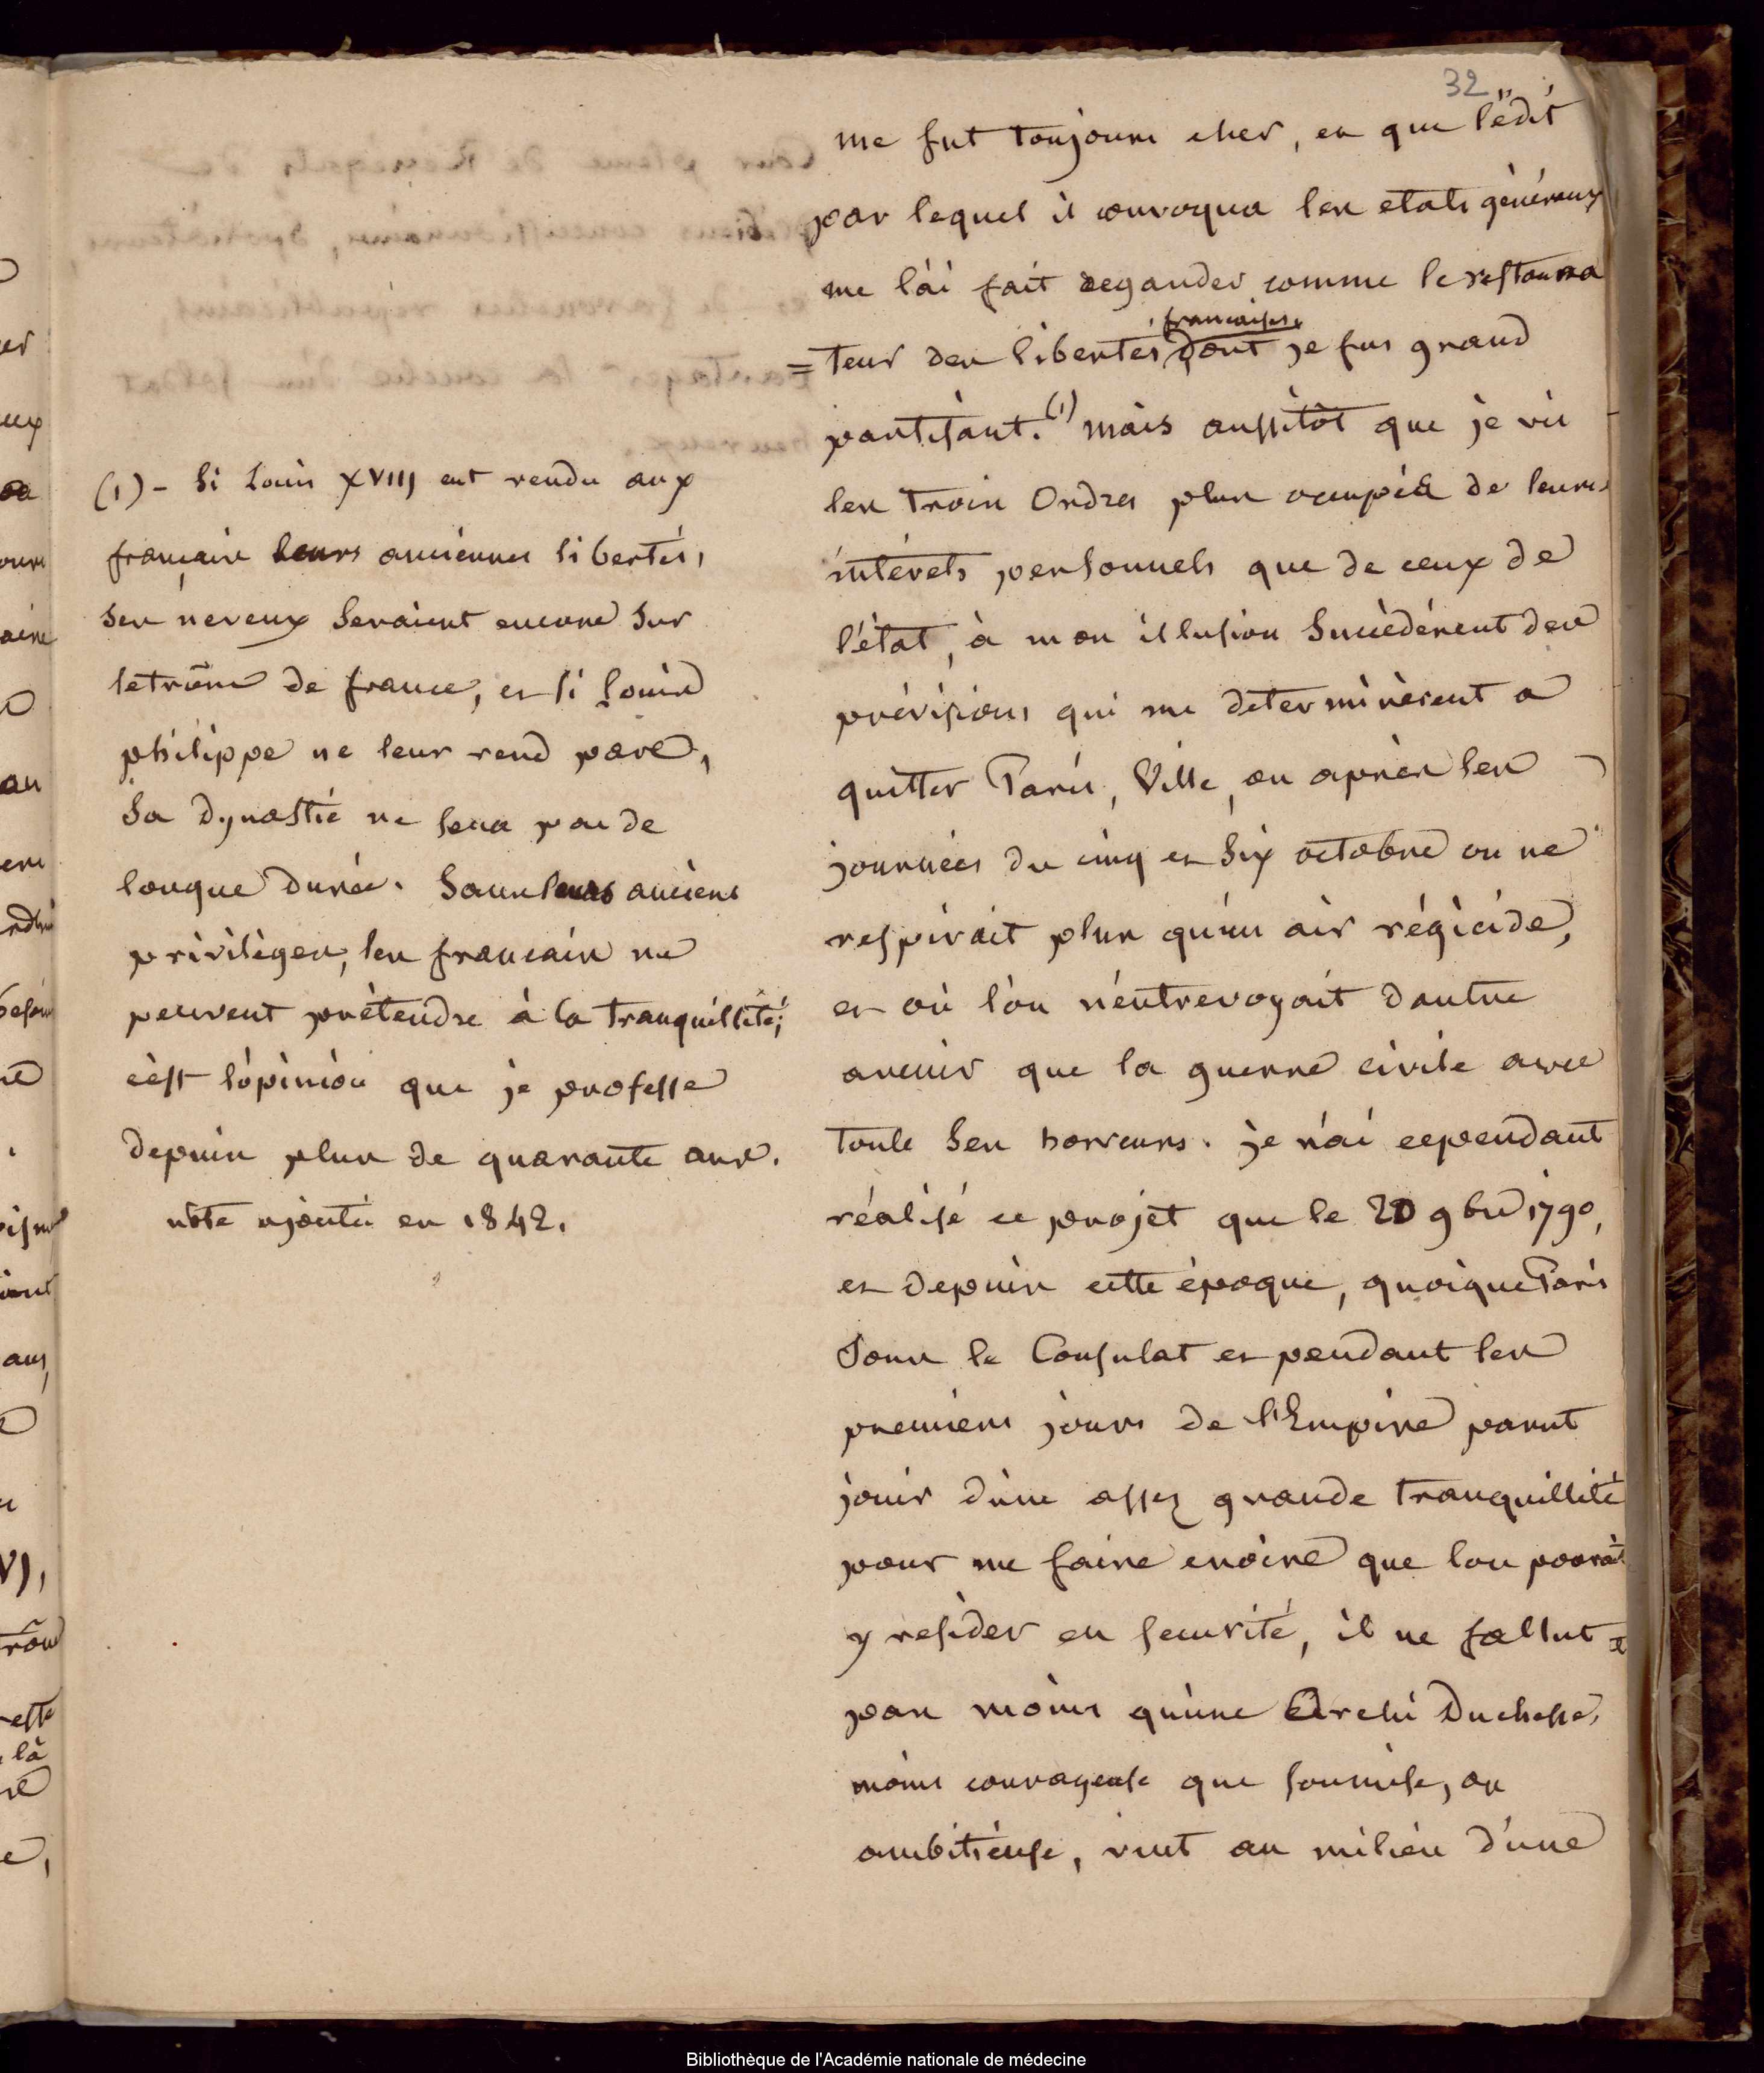 32
me fut toujours cher, et que l'édit
par lequel il convoqua les etats généraux
me l'ai fait regarder comme le restaura
= teur des libertés françaises dont je fus grand
partisant. (1) mais aussitôt que je vis
les trois Ordres plus ocupés de leurs
intérets personnels que de ceux de
l'état, à mon illusion succédérent des
prévisions qui me determinèrent a
quitter Paris, Ville, ou après les
journées du cinq et six octobre on ne
respirait plus qu'un air régicide,
et où l'on n'entrevoyait d'autre
avenir que la guerre civile avec
toute ses horreurs. je n'ai cependant
réalisé ce projet que le 20 9bre 1790,
et depuis cette époque, quoique Paris
sous le Consulat et pendant les
premiers jours de l'Empire parut
jouir d'une assez grande tranquillité
pour me faire croire que l'on pourait
y resider en securité, il ne fallut
pas moins qu'une Archi Duchesse,
moins courageuse que soumise, ou
ambitieuse, vint au milieu d'une
(1) - Si Louis XVIII eut rendu aux
français leurs anciennes libertés,
ses neveux seraient encore sur
le trône de france, et si Louis
philippe ne leur rend pas,
sa dynastie ne sera pas de
longue durée. Sans leurs anciens
privilèges, les francais ne
peuvent prétendre à la tranquillité;
c'est l'opinion que je professe
depuis plus de quarante ans.
note ajoutée en 1842.
Bibliothèque de l'Académie nationale de médecine